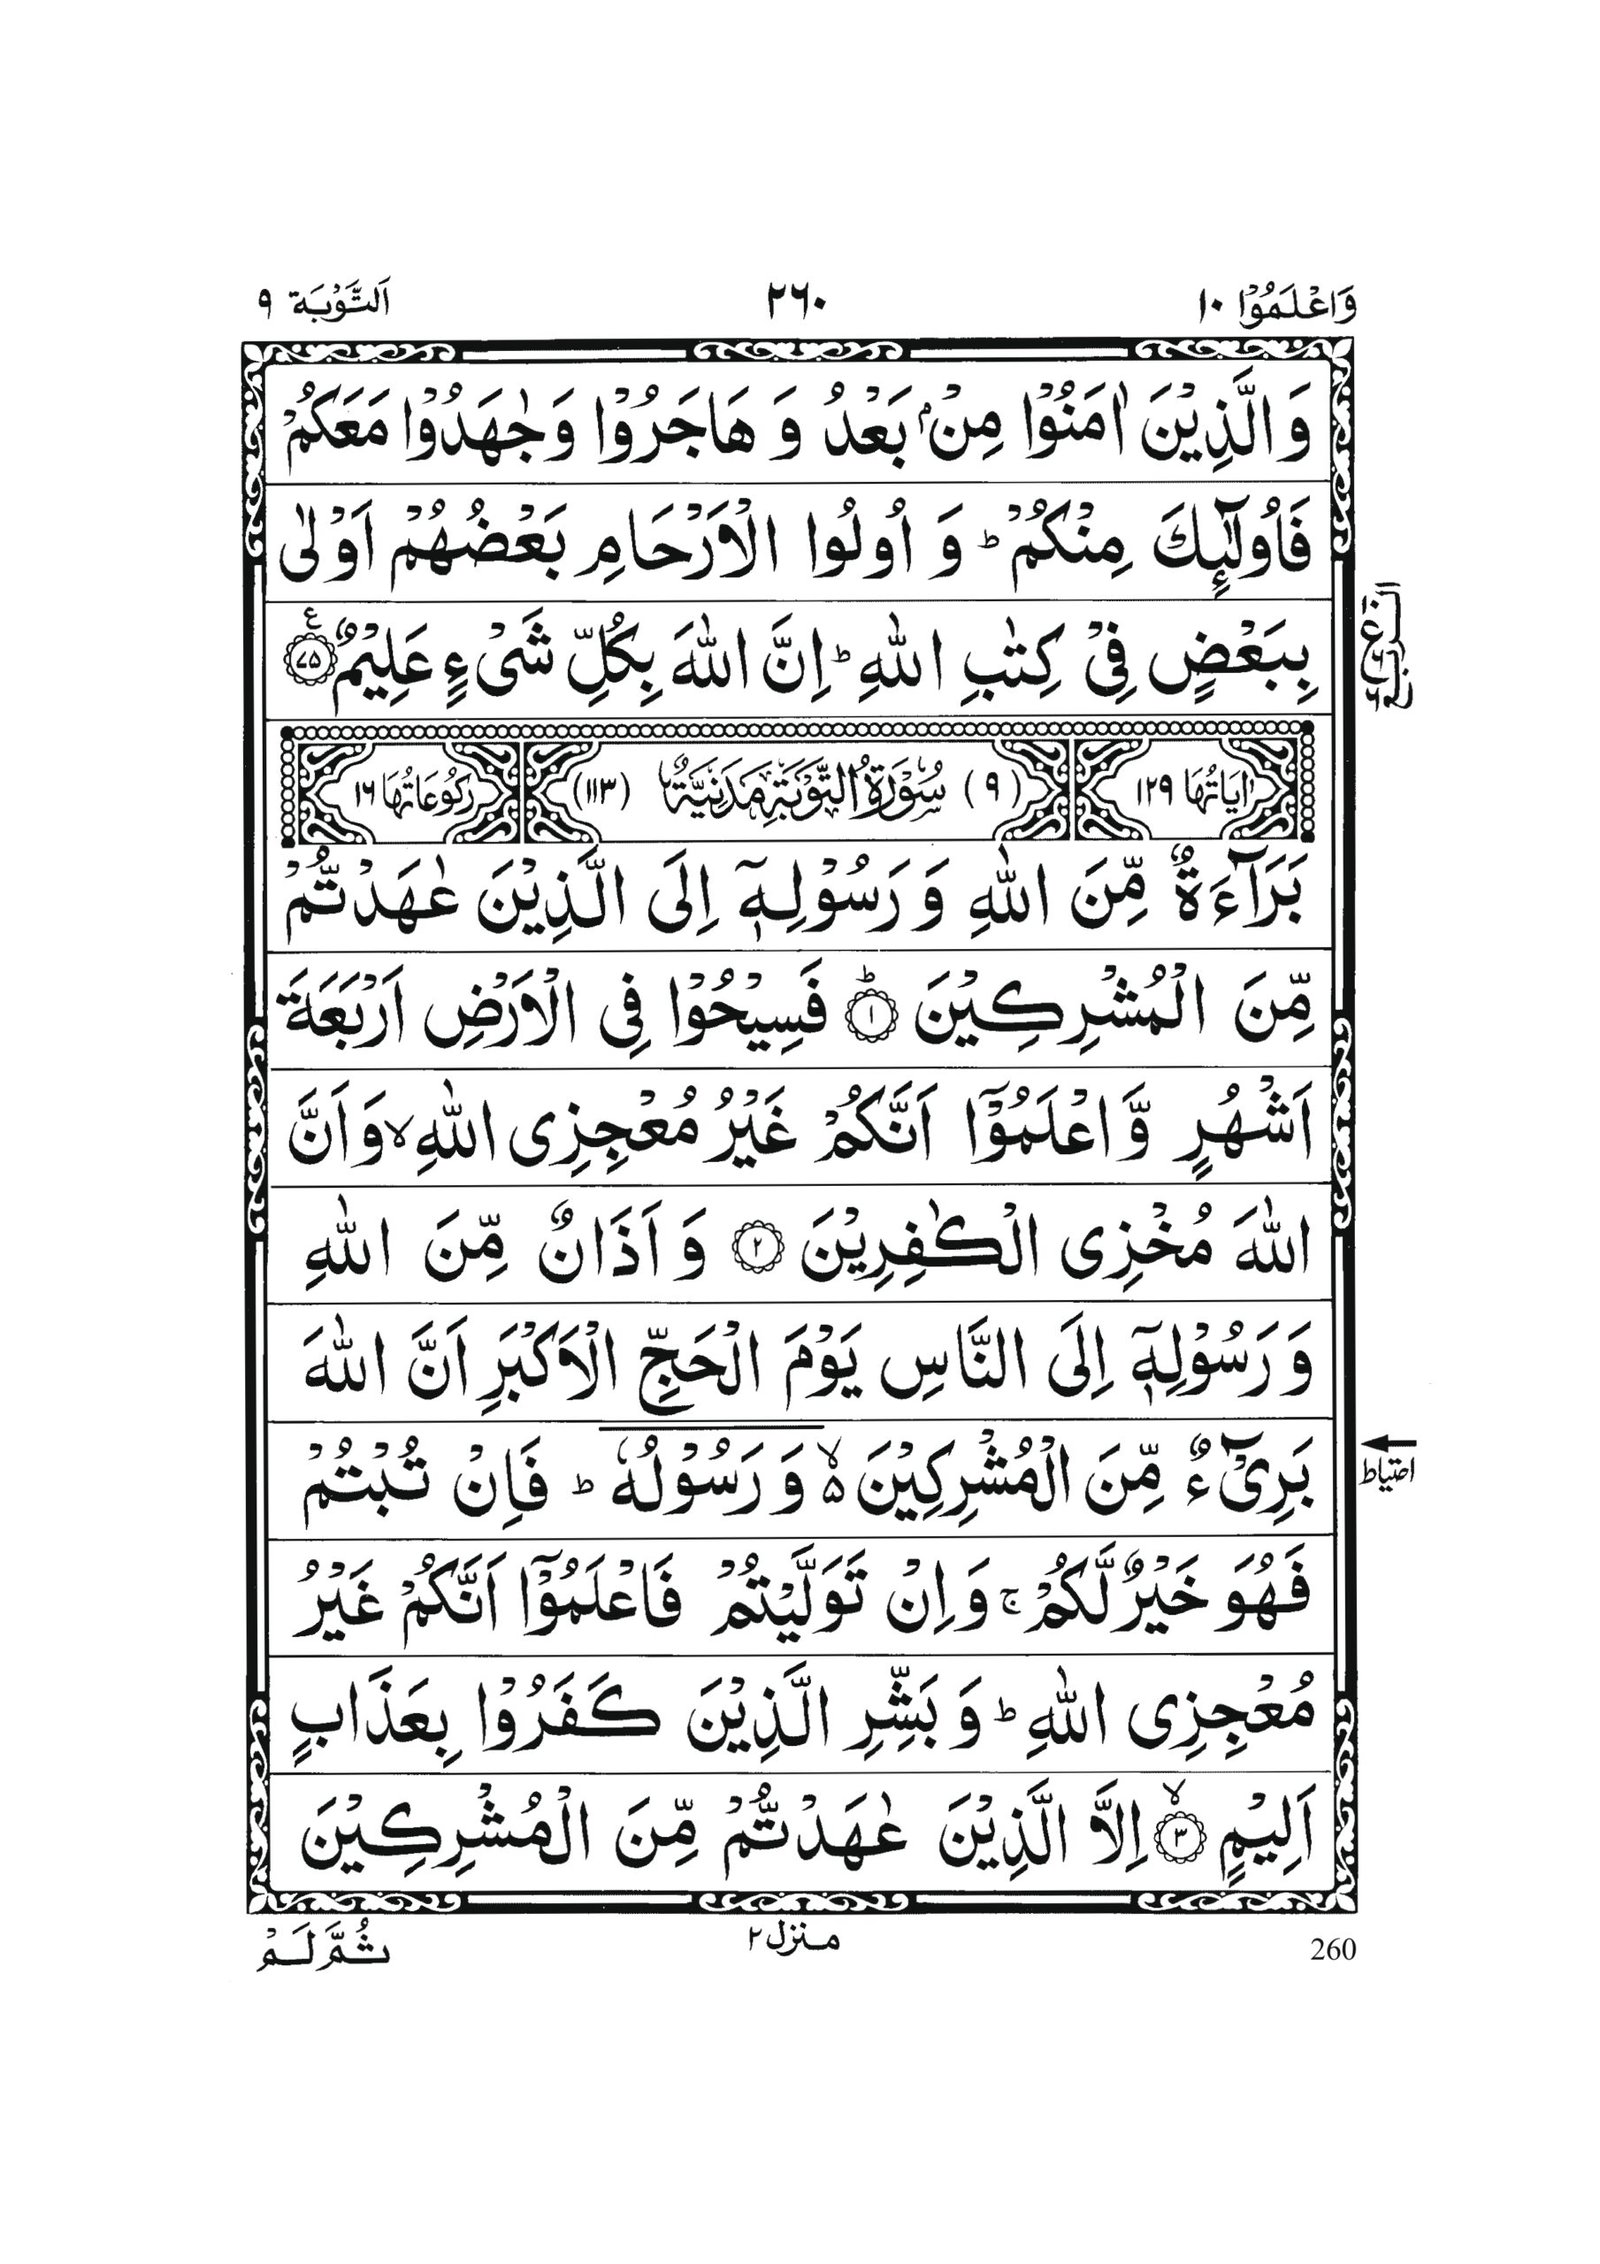 وَاعْلَمُوْۤا ١٠
٢٦٠
اَلتَّوْبَة ٩
وَ الَّذِيْنَ اٰمَنُوْا مِنْۢ بَعْدُ وَ هَاجَرُوْا وَ جٰهَدُوْا مَعَكُمْ
فَاُولٰٓئِكَ مِنْكُمْ ؕ وَ اُولُوا الْاَرْحَامِ بَعْضُهُمْ اَوْلٰى
بِبَعْضٍ فِيْ كِتٰبِ اللّٰهِ ؕ اِنَّ اللّٰهَ بِكُلِّ شَيْءٍ عَلِيْمٌ ۧ ٧٥
اٰيَاتُهَا ١٢٩ (٩) سُوْرَةُ التَّوْبَةِ مَدَنِيَّةٌ (١١٣) رُكُوْعَاتُهَا ١٦
بَرَآءَةٌ مِّنَ اللّٰهِ وَ رَسُوْلِهٖۤ اِلَى الَّذِيْنَ عٰهَدْتُّمْ
مِّنَ الْمُشْرِكِيْنَ ؕ ١ فَسِيْحُوْا فِى الْاَرْضِ اَرْبَعَةَ
اَشْهُرٍ وَّ اعْلَمُوْۤا اَنَّكُمْ غَيْرُ مُعْجِزِى اللّٰهِ ۙ وَ اَنَّ
اللّٰهَ مُخْزِى الْكٰفِرِيْنَ ٢ وَ اَذَانٌ مِّنَ اللّٰهِ
وَ رَسُوْلِهٖۤ اِلَى النَّاسِ يَوْمَ الْحَجِّ الْاَكْبَرِ اَنَّ اللّٰهَ
بَرِيْٓءٌ مِّنَ الْمُشْرِكِيْنَ ۙ۬ وَ رَسُوْلُهٗ ؕ فَاِنْ تُبْتُمْ
احتياط
فَهُوَ خَيْرٌ لَّكُمْ ۚ وَ اِنْ تَوَلَّيْتُمْ فَاعْلَمُوْۤا اَنَّكُمْ غَيْرُ
مُعْجِزِى اللّٰهِ ؕ وَ بَشِّرِ الَّذِيْنَ كَفَرُوْا بِعَذَابٍ
اَلِيْمٍ ۙ ٣ اِلَّا الَّذِيْنَ عٰهَدْتُّمْ مِّنَ الْمُشْرِكِيْنَ
ثُمَّ لَمْ
منزل ٢
260